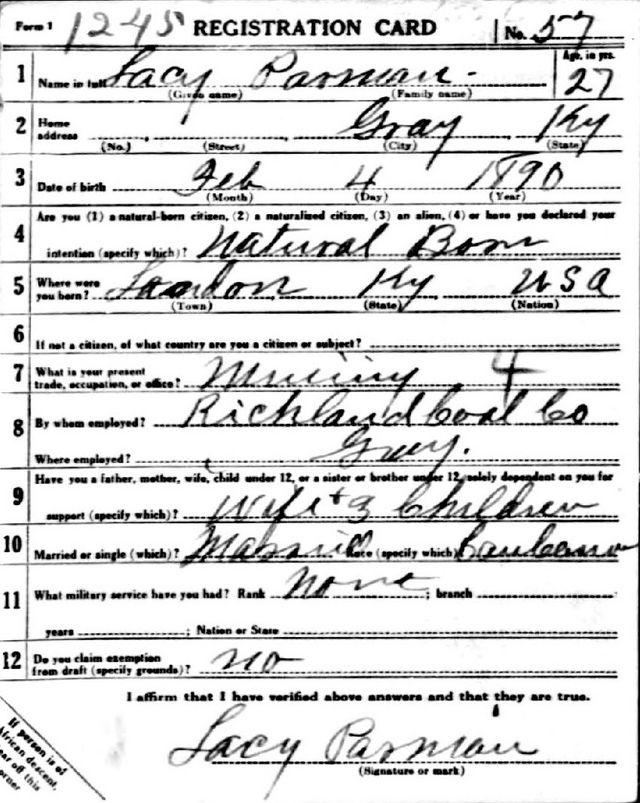 Form 1 1245 REGISTRATION CARD No. 57
1 Name in full Lacy Parman. Age, in yrs. 27
(Given name) (Family name)
2 Home address Gray Ky
(No.) (Street) (City) (State)
3 Date of birth Feb 4 1890
(Month) (Day) (Year)
4 Are you (1) a natural-born citizen, (2) a naturalized citizen, (3) an alien, (4) or have you declared your
intention (specify which)? Natural Born
5 Where were you born? Ky USA
(Town) (State) (Nation)
6 If not a citizen, of what country are you a citizen or subject?
7 What is your present trade, occupation, or office? 4
8 By whom employed? Richland Coal Co
Where employed? Gray.
9 Have you a father, mother, wife, child under 12, or a sister or brother under 12, solely dependent on you for
support (specify which)? Wife + 3 Children
10 Married or single (which)? Married Race (specify which)
11 What military service have you had? Rank None ; branch
years ; Nation or State
12 Do you claim exemption from draft (specify grounds)? no
I affirm that I have verified above answers and that they are true.
Lacy Parman
(Signature or mark)
If person is of
African descent,
off this
corner